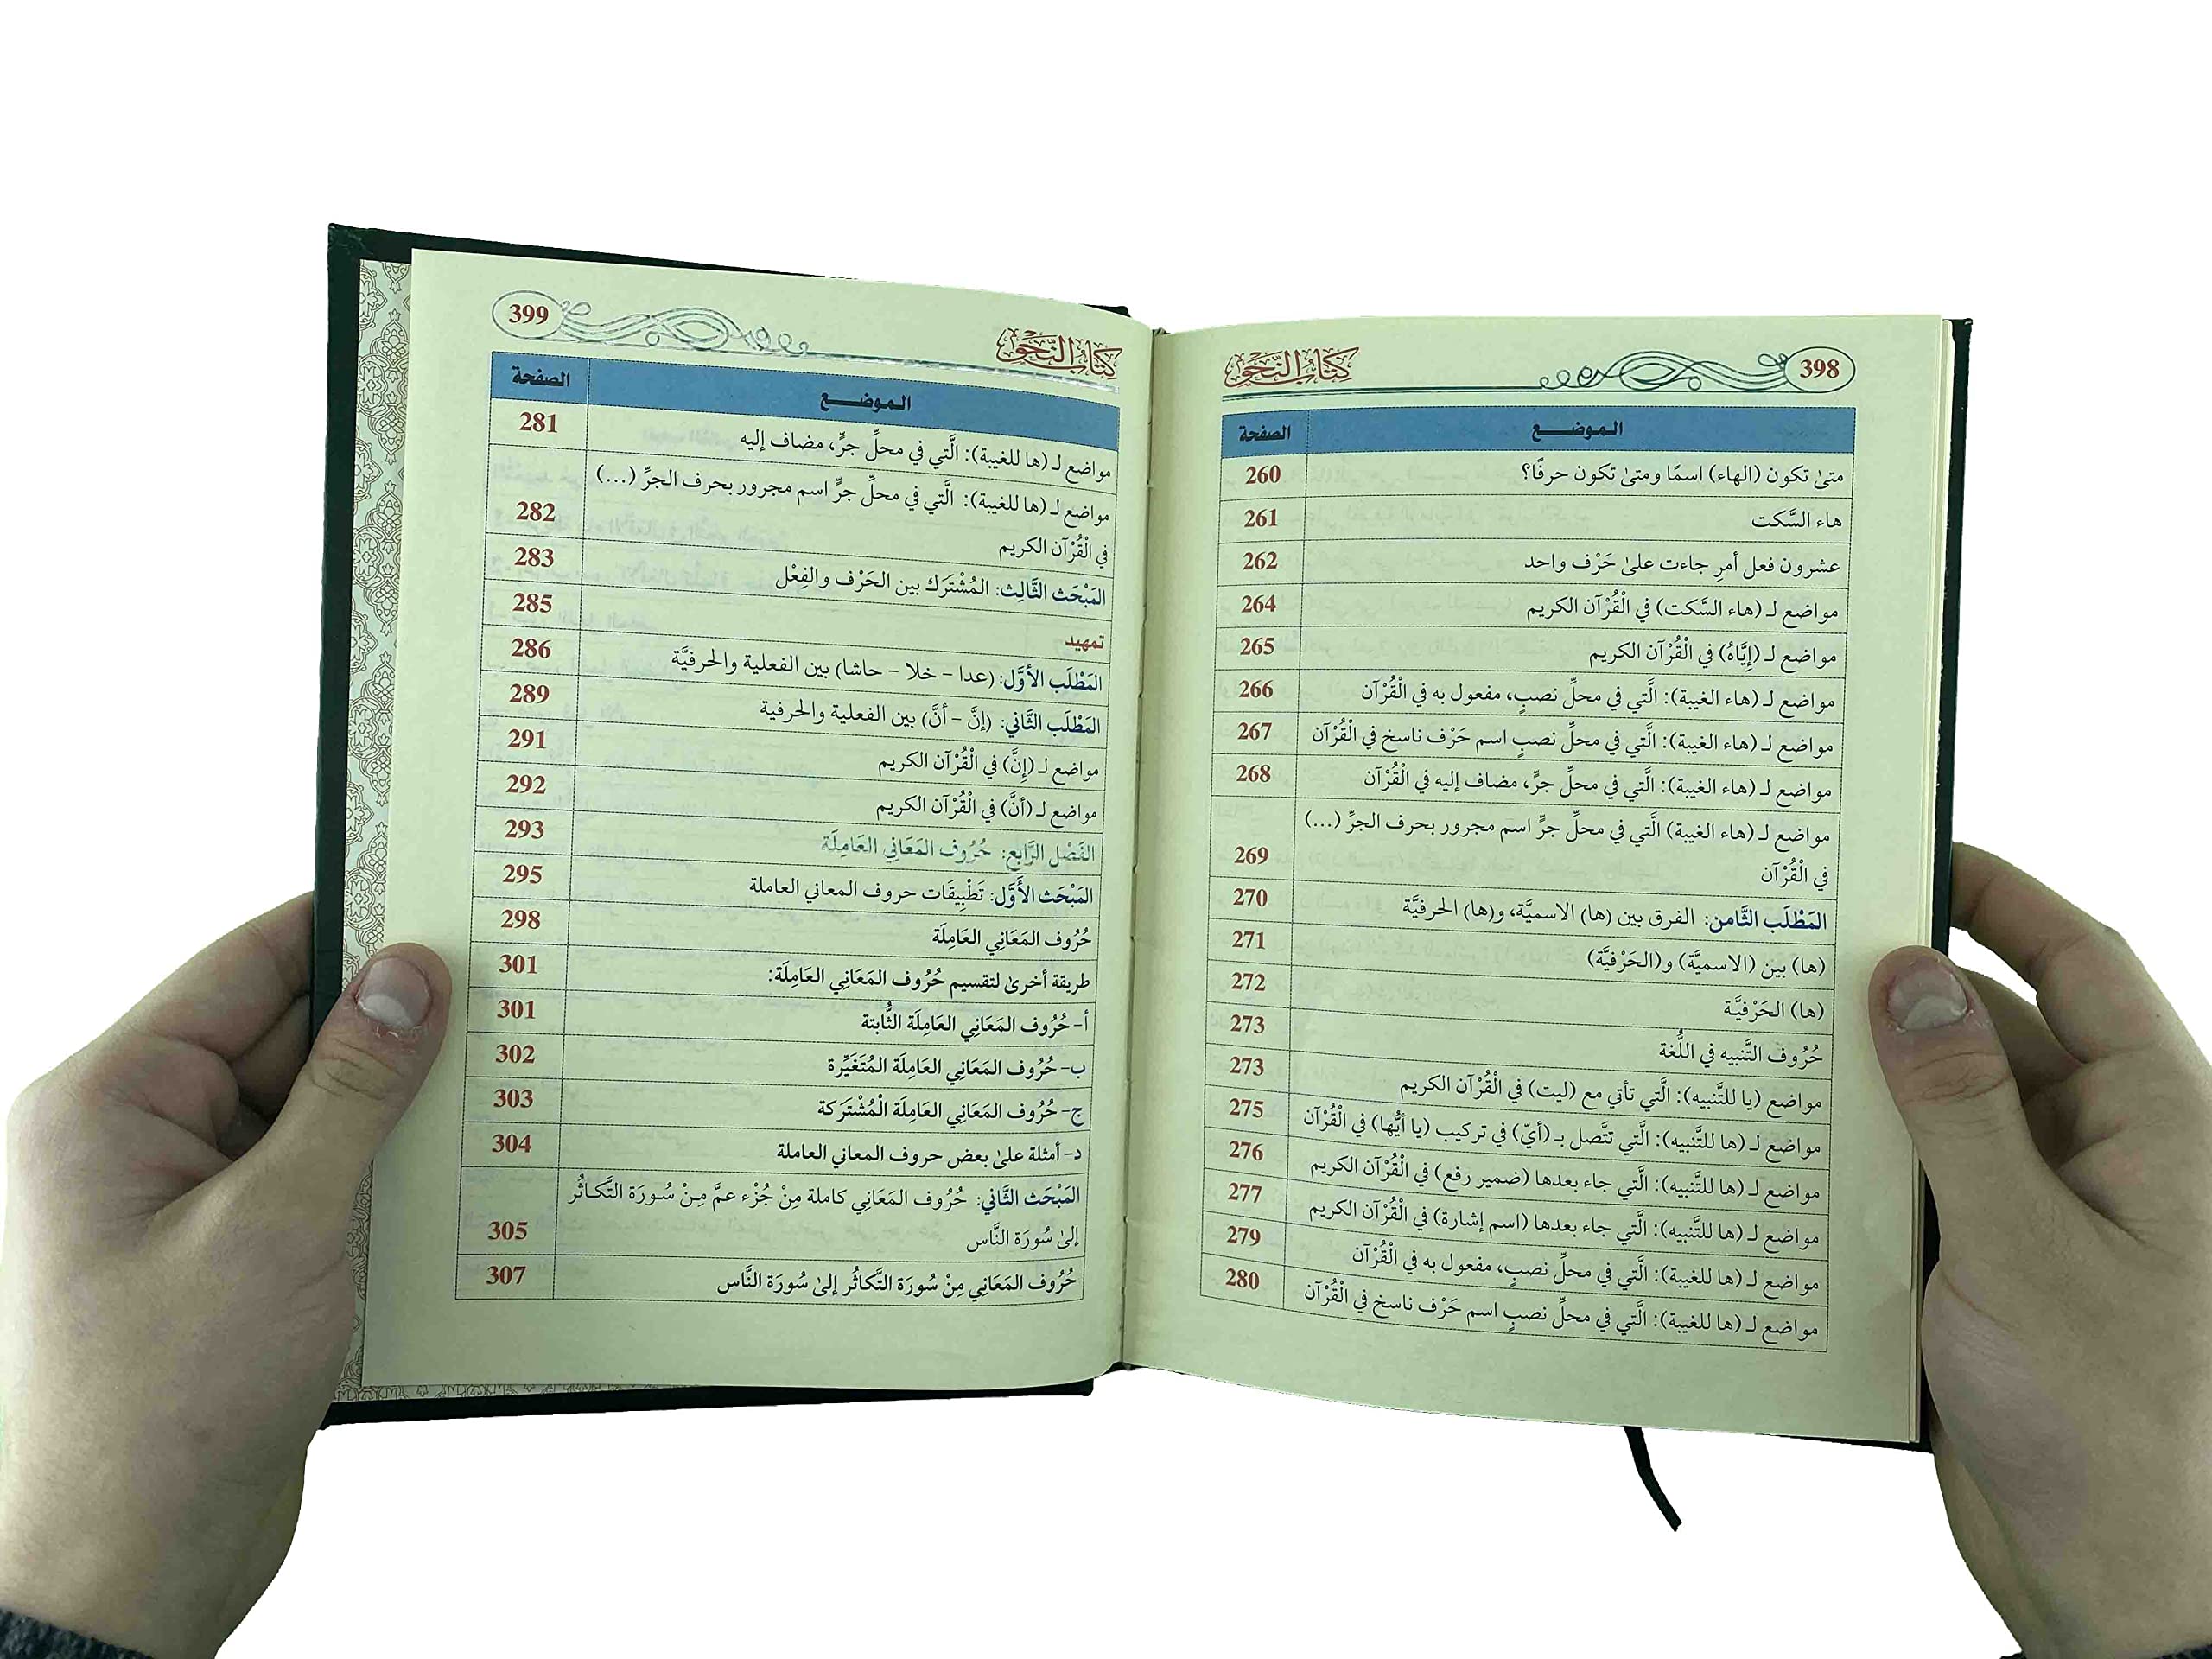 398
كتاب النحو
الموضع الصفحة
متىٰ تكون (الهاء) اسمًا ومتىٰ تكون حرفًا؟ 260
هاء السَّكت 261
عشرون فعل أمرِ جاءت علىٰ حَرْف واحد 262
مواضع لـ (هاء السَّكت) في الْقُرْآن الكريم 264
مواضع لـ (إِيَّاهُ) في الْقُرْآن الكريم 265
مواضع لـ (هاء الغيبة): الَّتي في محلِّ نصبٍ، مفعول به في الْقُرْآن 266
مواضع لـ (هاء الغيبة): الَّتي في محلِّ نصبٍ اسم حَرْف ناسخ في الْقُرْآن 267
مواضع لـ (هاء الغيبة): الَّتي في محلِّ جرٍّ، مضاف إليه في الْقُرْآن 268
مواضع لـ (هاء الغيبة) الَّتي في محلِّ جرٍّ اسم مجرور بحرف الجرِّ (...)
في الْقُرْآن 269
المَطْلَب الثَّامن: الفرق بين (ها) الاسميَّة، و(ها) الحرفيَّة 270
(ها) بين (الاسميَّة) و(الحَرْفيَّة) 271
(ها) الحَرْفيَّة 272
حُرُوف التَّنبيه في اللُّغة 273
مواضع (يا للتَّنبيه): الَّتي تأتي مع (ليت) في الْقُرْآن الكريم 273
مواضع لـ (ها للتَّنبيه): الَّتي تتَّصل بـ (أيّ) في تركيب (يا أيُّها) في الْقُرْآن 275
مواضع لـ (ها للتَّنبيه): الَّتي جاء بعدها (ضمير رفع) في الْقُرْآن الكريم 276
مواضع لـ (ها للتَّنبيه): الَّتي جاء بعدها (اسم إشارة) في الْقُرْآن الكريم 277
مواضع لـ (ها للغيبة): الَّتي في محلِّ نصبٍ، مفعول به في الْقُرْآن 279
مواضع لـ (ها للغيبة): الَّتي في محلِّ نصبٍ اسم حَرْف ناسخ في الْقُرْآن 280
كتاب النحو
399
الموضع الصفحة
مواضع لـ (ها للغيبة): الَّتي في محلِّ جرٍّ، مضاف إليه 281
مواضع لـ (ها للغيبة): الَّتي في محلِّ جرٍّ اسم مجرور بحرف الجرِّ (...)
في الْقُرْآن الكريم 282
المَبْحَث الثَّالِث: المُشْتَرَك بين الحَرْف والفِعْل 283
تمهيد 285
المَطْلَب الأوَّل: (عدا - خلا - حاشا) بين الفعلية والحرفيَّة 286
المَطْلَب الثَّاني: (إنَّ - أنَّ) بين الفعلية والحرفية 289
مواضع لـ (إنَّ) في الْقُرْآن الكريم 291
مواضع لـ (أنَّ) في الْقُرْآن الكريم 292
الفَصْل الرَّابع: حُرُوف المَعَانِي العَامِلَة 293
المَبْحَث الأَوَّل: تَطْبِيقَات حروف المعاني العاملة 295
حُرُوف المَعَانِي العَامِلَة 298
طريقة أخرىٰ لتقسيم حُرُوف المَعَانِي العَامِلَة: 301
أ- حُرُوف المَعَانِي العَامِلَة الثَّابتة 301
ب- حُرُوف المَعَانِي العَامِلَة المُتَغَيِّرة 302
ج- حُرُوف المَعَانِي العَامِلَة الْمُشْتَرَكة 303
د- أمثلة علىٰ بعض حروف المعاني العاملة 304
المَبْحَث الثَّاني: حُرُوف المَعَانِي كاملة مِنْ جُزْء عمَّ مِنْ سُورَة التَّكاثُر
إلىٰ سُورَة النَّاس 305
حُرُوف المَعَانِي مِنْ سُورَة التَّكاثُر إلىٰ سُورَة النَّاس 307